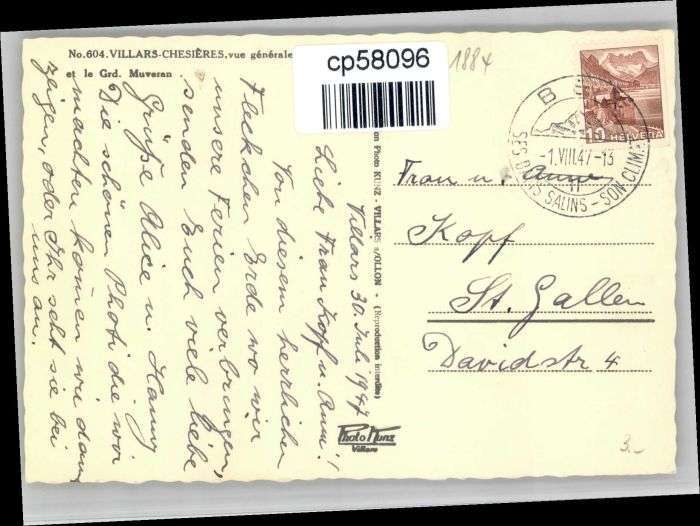 No. 604. VILLARS-CHESIÈRES, vue générale
et le Grd. Muveran
cp58096
1884
HELVETIA
10
-1.VIII.47-13
SES BAINS SALINS - SON CLIMAT
Photo KUNZ - VILLARS s/OLLON - (Reproduction interdite)
Villars 30. Juli 1947
Liebe Frau Kopf u. Anni!
Von diesem herrlichen
Fleckchen Erde wo wir
unsere Ferien verbringen,
senden Euch viele liebe
Grüße Alice u. Hanny
Die schönen Photi die wir
machten können wir dann
zeigen, oder Ihr seht sie bei
uns an.
Frau u. Anny
Kopf
St. Gallen
Davidstr 4
Photo Kunz
Villars
3.-